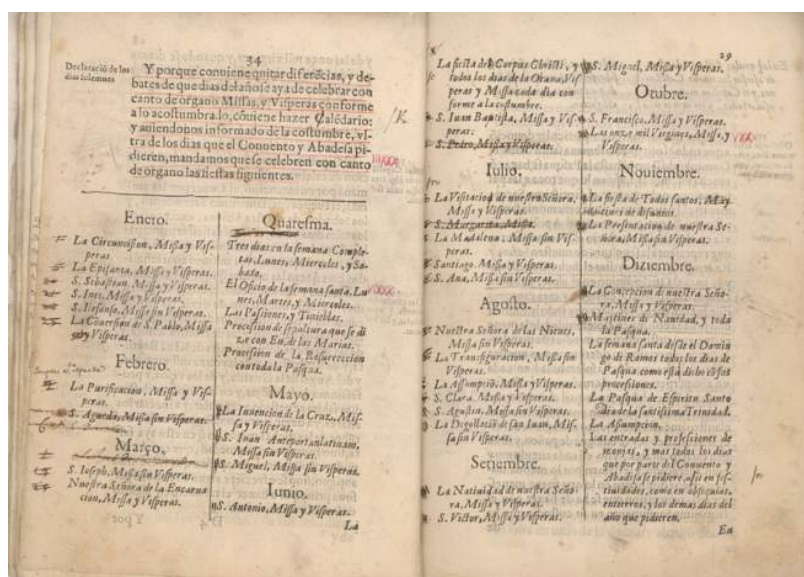 34
Declaració de los
dias solemnes
Y porque conuiene quitar diferécias, y de-
bates de que dias del año se aya de celebrar con
canto de organo Missas, y Visperas conforme
a lo acostumbra.lo, cóuiene hazer Calédario:
y auiendonos informado de la costumbre, vl-
tra de los dias que el Conuento y Abadesa pi-
dieren, mandamos que se celebren con canto
de organo las fiestas siguientes.
Enero.
La Circuncision, Missa y Vis-
peras.
La Epifania, Missa y Visperas.
S. Sebastian, Missa y Visperas.
S. Ines, Missa y Visperas.
S. Ilefonso, Missa sin Visperas.
La Conuersion de S. Pablo, Missa
Visperas.
Febrero.
La Purificacion, Missa y Vis-
peras.
S. Agueda, Missa sin Visperas.
Março.
S. Ioseph, Missa sin Visperas.
Nuestra Señora de la Encarna
cion, Missa y Visperas.
Quaresma.
Tres dias en la semana Comple-
tas, Lunes, Miercoles, y Sa-
bado.
El Oficio de la semana santa, Lu
nes, Martes, y Miercoles.
Las Pasiones, y Tinieblas.
Procesion de sepultura que se di
ze con En, di las Marias.
Procesion de la Resurreccion
con toda la Pasqua.
Mayo.
La Inuencion de la Cruz, Mis-
sa y Visperas.
S. Iuan Anteportanlatinam,
Missa sin Visperas.
S. Miguel, Missa sin Visperas.
Iunio.
S. Antonio, Missa y Visperas.
La
29
La fiesta del Corpus Christi, y
todos los dias de la Otaua, Vis
peras y Missa cada dia con
forme a la costumbre.
S. Iuan Baptista, Missa y Vis-
peras.
S. Pedro, Missa y Visperas.
Iulio.
La Visitacion de nuestra Señora,
Missa y Visperas.
S. Margarita, Missa.
La Madalena, Missa sin Vis-
peras.
Santiago. Missa y Visperas.
S. Ana, Missa sin Visperas.
Agosto.
Nuestra Señora de las Nieues,
Missa sin Visperas.
La Transfiguracion, Missa sin
Visperas.
La Assumpció, Missa y Visperas.
S. Clara. Missa y Visperas.
S. Agustin. Missa sin Visperas.
La Degollació de san Iuan, Mis-
sa sin Visperas.
Setiembre.
La Natiuidad de nuestra Seño-
ra, Missa y Visperas.
S. Victor, Missa y Visperas.
S. Miguel, Missa y Visperas.
Otubre.
S. Francisco, Missa y Visperas.
Las onze mil Virgines, Missa, y
Visperas.
Nouiembre.
La fiesta de Todos santos, May
tines de difuntos.
La Presentacion de nuestra Se-
ñora, Missa sin Visperas.
Diziembre.
La Concepcion de nuestra Seño-
ra, Missa y Visperas.
Maitines de Nauidad, y toda
la Pasqua.
La semana santa desde el Domin
go de Ramos todos los dias de
Pasqua como está dicho có sus
procesiones.
La Pasqua de Espiritu Santo
dia de la santissima Trinidad.
La Assumpcion.
Las entradas y profesiones de
monjas, y mas todos los dias
que por parte del Conuento y
Abadesa se pidiere, assi en fes-
tiuidades, como en obsequias,
entierros, y los demas dias del
año que pidieren.
En